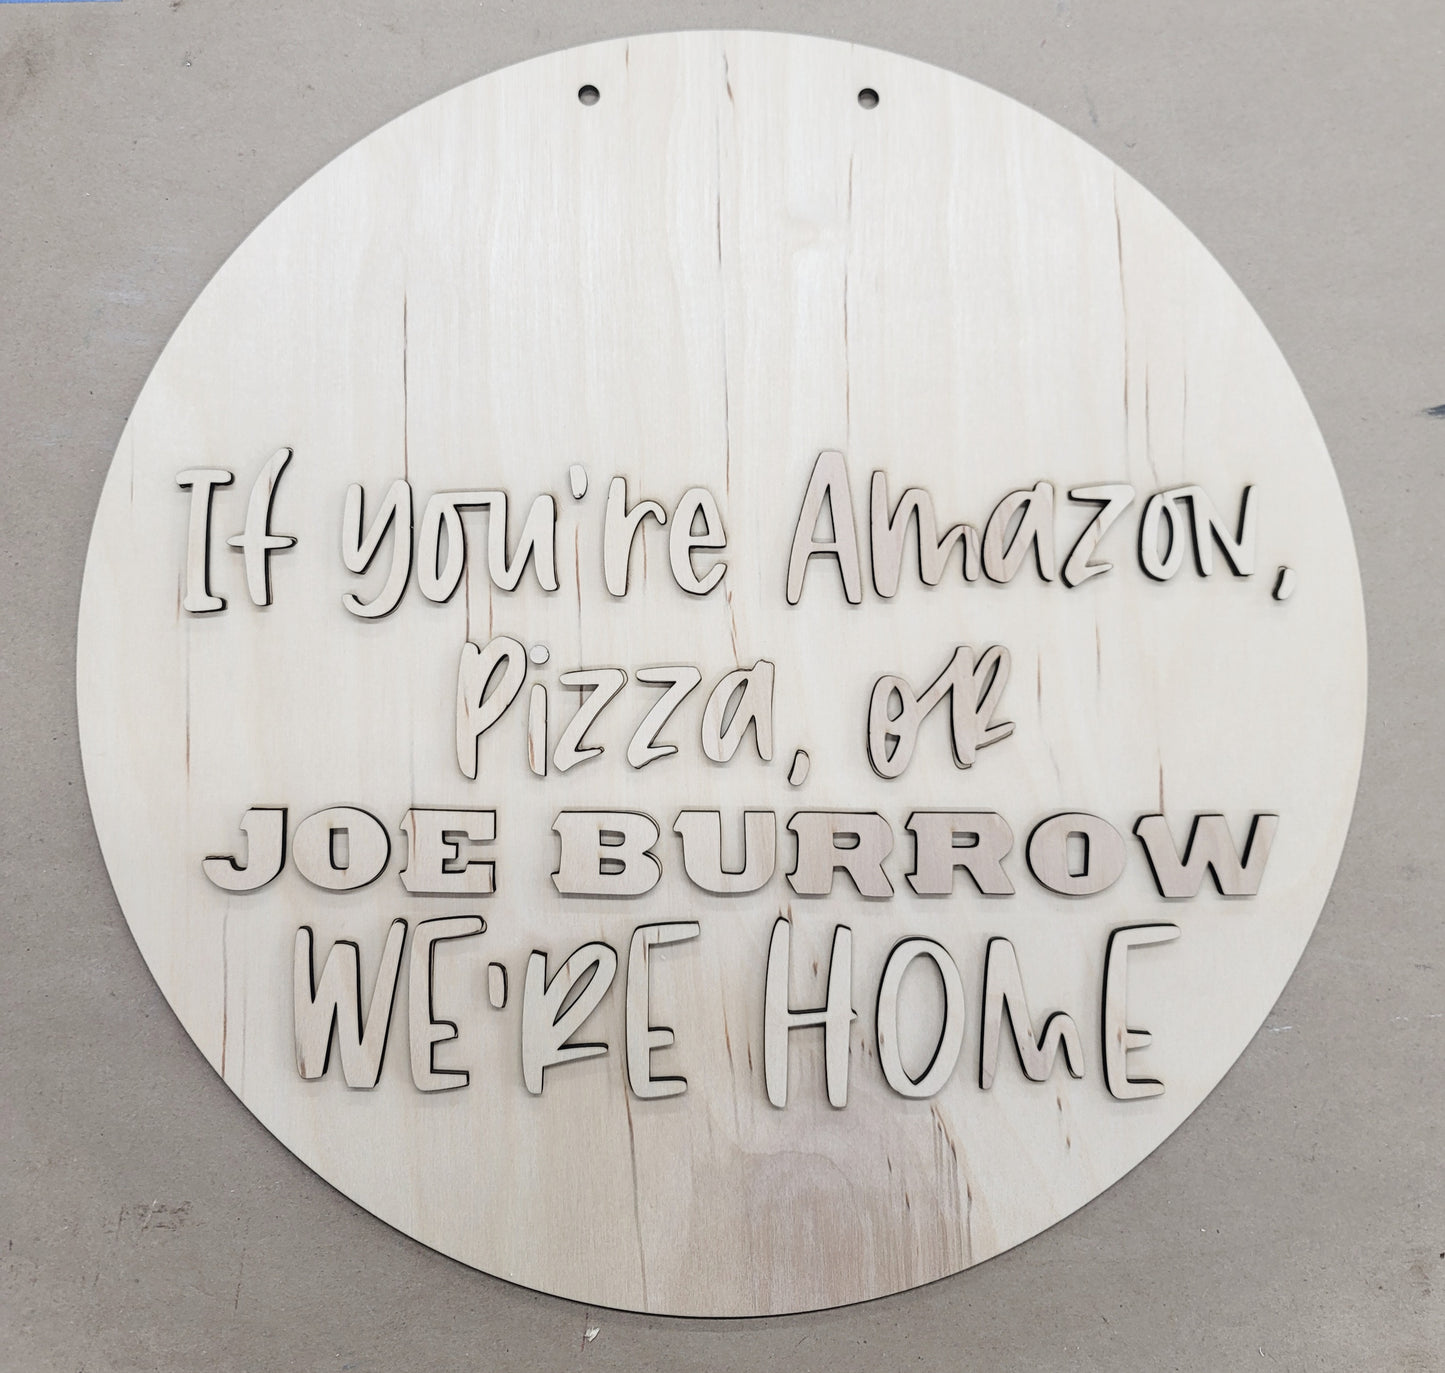 If you're Amazon,
Pizza, OR
JOE BURROW
WE'RE HOME